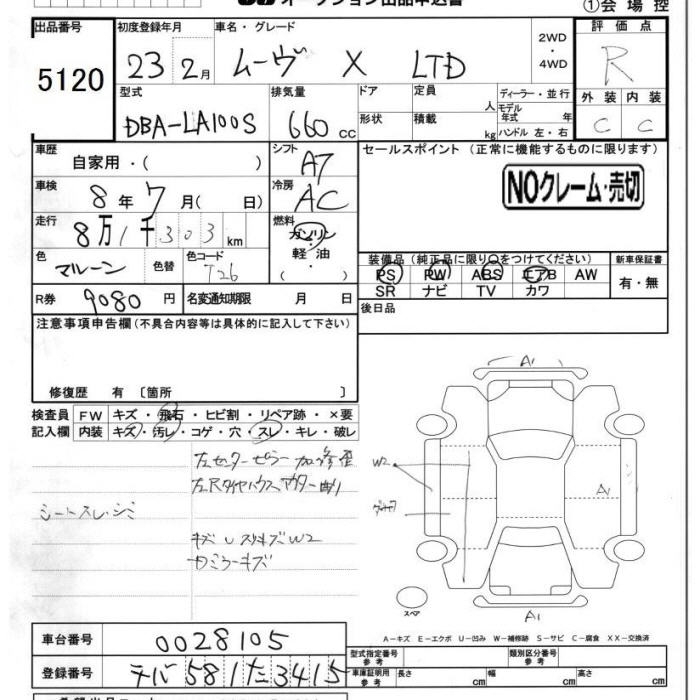 オークション出品申込書
①会場控
出品番号 初度登録年月 車名・グレード 2WD・4WD 評価点
5120 23 2月 ムーヴ X LTD R
型式 排気量 ドア 定員 人 ディーラー・並行 外装 内装
DBA-LA100S 660cc 形状 積載 kg モデル年式 年式 ハンドル 左・右 C C
車歴 自家用・( ) シフト A7 セールスポイント (正常に機能するものに限ります)
車検 8年7月( 日) 冷房 AC NOクレーム・売切
走行 8万1千303km 燃料 ガソリン・軽油・( )
色 マルーン 色替 色コード T26
装備品 (純正品に限り○をつけてください) 新車保証書
PS PW ABS エアB AW 有・無
SR ナビ TV カワ
R券 9080円 名変通知期限 月 日 後日品
注意事項申告欄(不具合内容等は具体的に記入して下さい)
修復歴 有 〔箇所 〕
検査員 FW キズ・飛石・ヒビ割・リペア跡・×要
記入欄 内装 キズ・汚レ・コゲ・穴・スレ・キレ・破レ
左センターピラー 加修歪
左Rタイヤハウスアウター曲り
シートスレ・シミ
キズU スリキズW2
ミラーキズ
A1
W2
A1
スペア A1
A-キズ E-エクボ U-凹み W-補修跡 S-サビ C-腐食 XX-交換済
車台番号 0028105
型式指定番号 参考 類別区分番号 参考
登録番号 581 た 3415
車庫証明用 参考 長さ cm 幅 cm 高さ cm